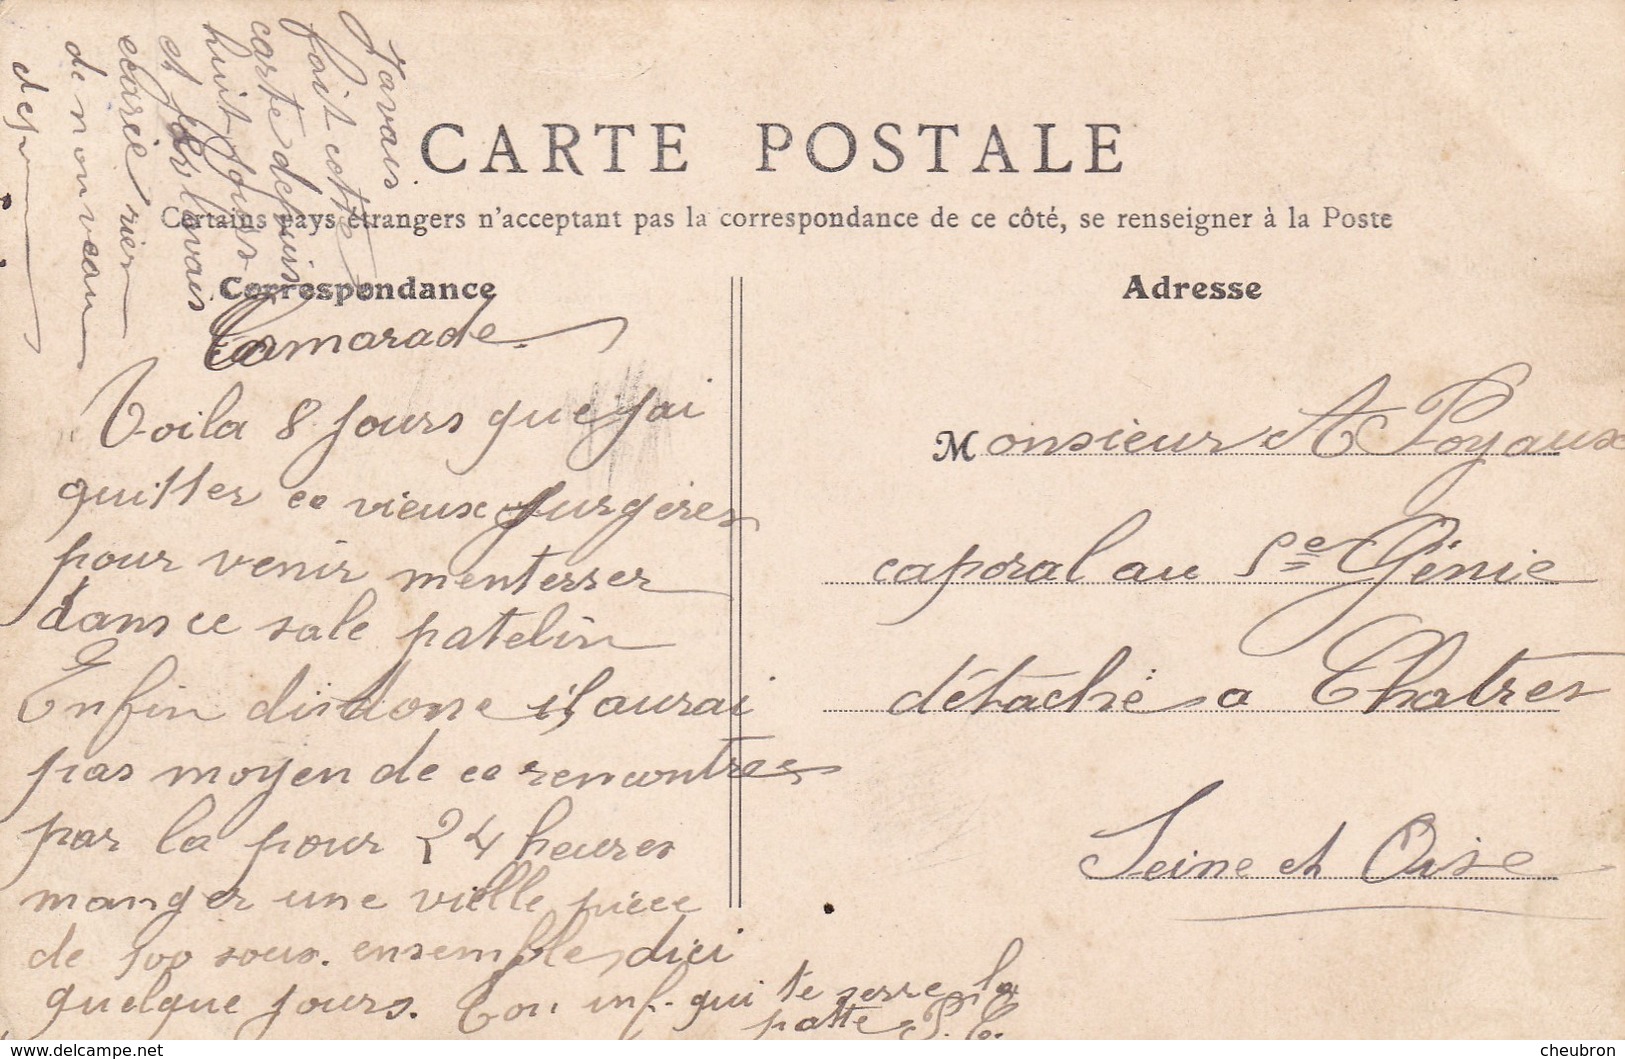 CARTE POSTALE
Certains pays étrangers n'acceptant pas la correspondance de ce côté, se renseigner à la Poste
Correspondance
Adresse
Camarade
Voila 8 jours que jai
quitter ce vieux Surgères
pour venir menterrer
dans ce sale patelin
Enfin dis donc il aurai
pas moyen de ce rencontrer
par la pour 24 heures
manger une vielle pièce
de 100 sous. ensemble dici
quelque jours. Ton inf. qui te serre la
patte P. C.
Javais
fait cette
carte depuis
huit jours
et je lavais
rien
de nouveau
Monsieur A Poyaux
caporal au 5e Génie
détaché a Chatres
Seine et Oise
www.delcampe.net
cheubron